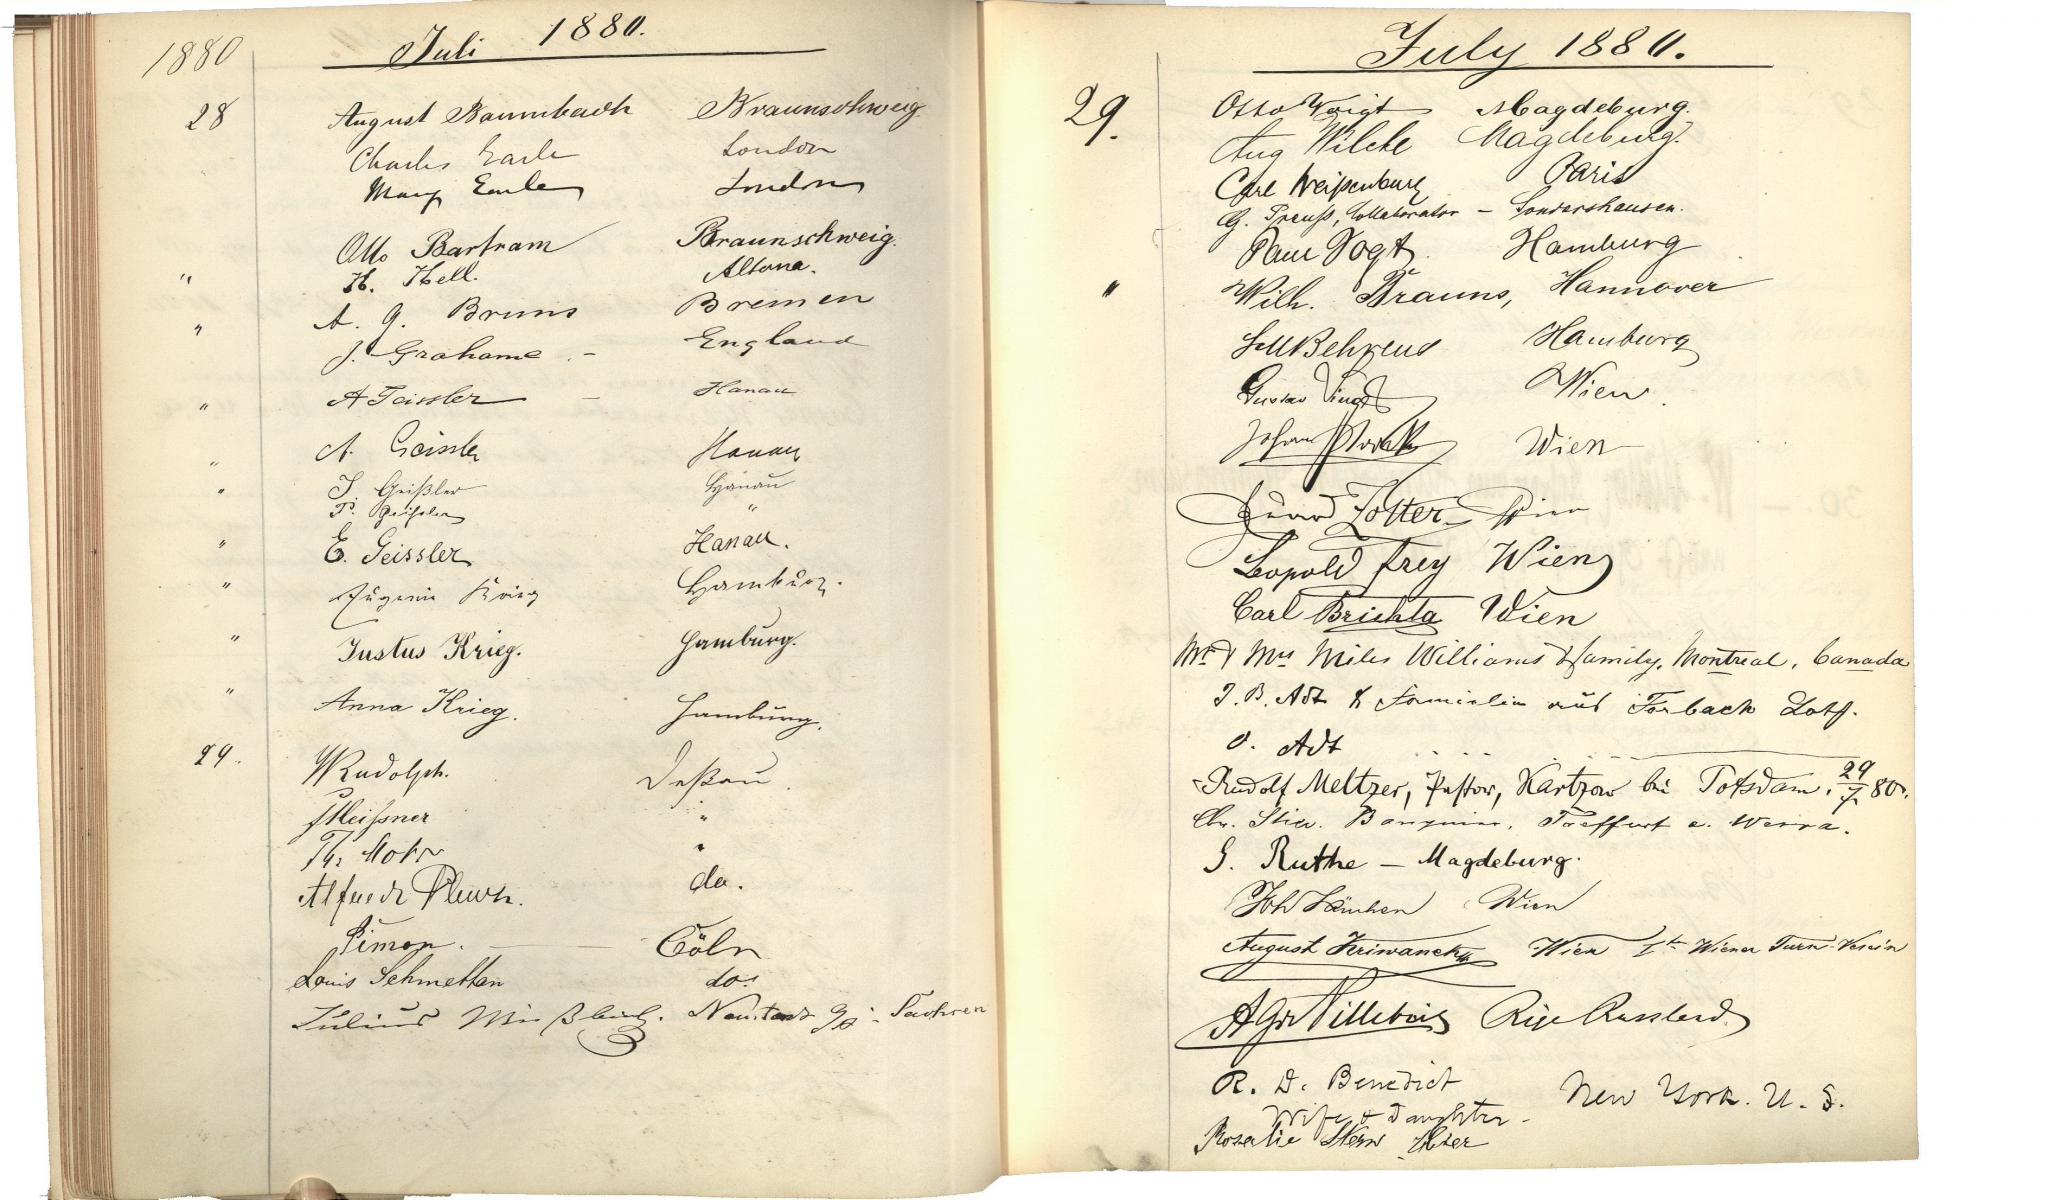 1880 Juli 1880.
28 August Baumbach Braunschweig
Charles Earle London
Mary Earle London
Otto Bartram Braunschweig.
" H. Hell. Altona.
" A. G. Bruns Bremen
J. Grahame. – England
" A Geissler – Hanau
" A. Geissler Hanau
" J. Geißler Hanau
P. Geissler "
" E. Geissler Hanau.
" Eugenie Krieg Hamburg.
" Justus Krieg. Hamburg.
" Anna Krieg. Hamburg.
29. W Rudolph. Deßau.
Meißner "
Th. "
Alfred do.
Simon. Cöln
Louis Schmetten do.
Julius Neustadt Sachsen
July 1880.
29. Otto Voigt Magdeburg.
Aug Wilcke Magdeburg.
Carl Weißenburg Paris
G. Preuß, Collaborator – Sondershausen.
Paul Vogt. Hamburg
" Wilh. Brauns, Hannover
Behrend Hamburg
Gustav Wien.
Johann Wien
Eduard Zotter Wien
Leopold Frey Wien
Carl Brichta Wien
Mr & Mrs Miles Williams & family, Montreal, Canada
J. B. Adt & Familie aus Forbach Loth.
O. Adt
Rudolf Meltzer, Pastor, Kartzow bei Potsdam. 29/7 80.
Chr. Banquier, Treffurt a. Werra.
G. Ruthe – Magdeburg.
Joh Wien
August Kriwanek Wien 1ter Wiener Turn-Verein
A Russland
R. D. Benedict New York. U. S.
Wife & Daughter.
Rosalie Stern